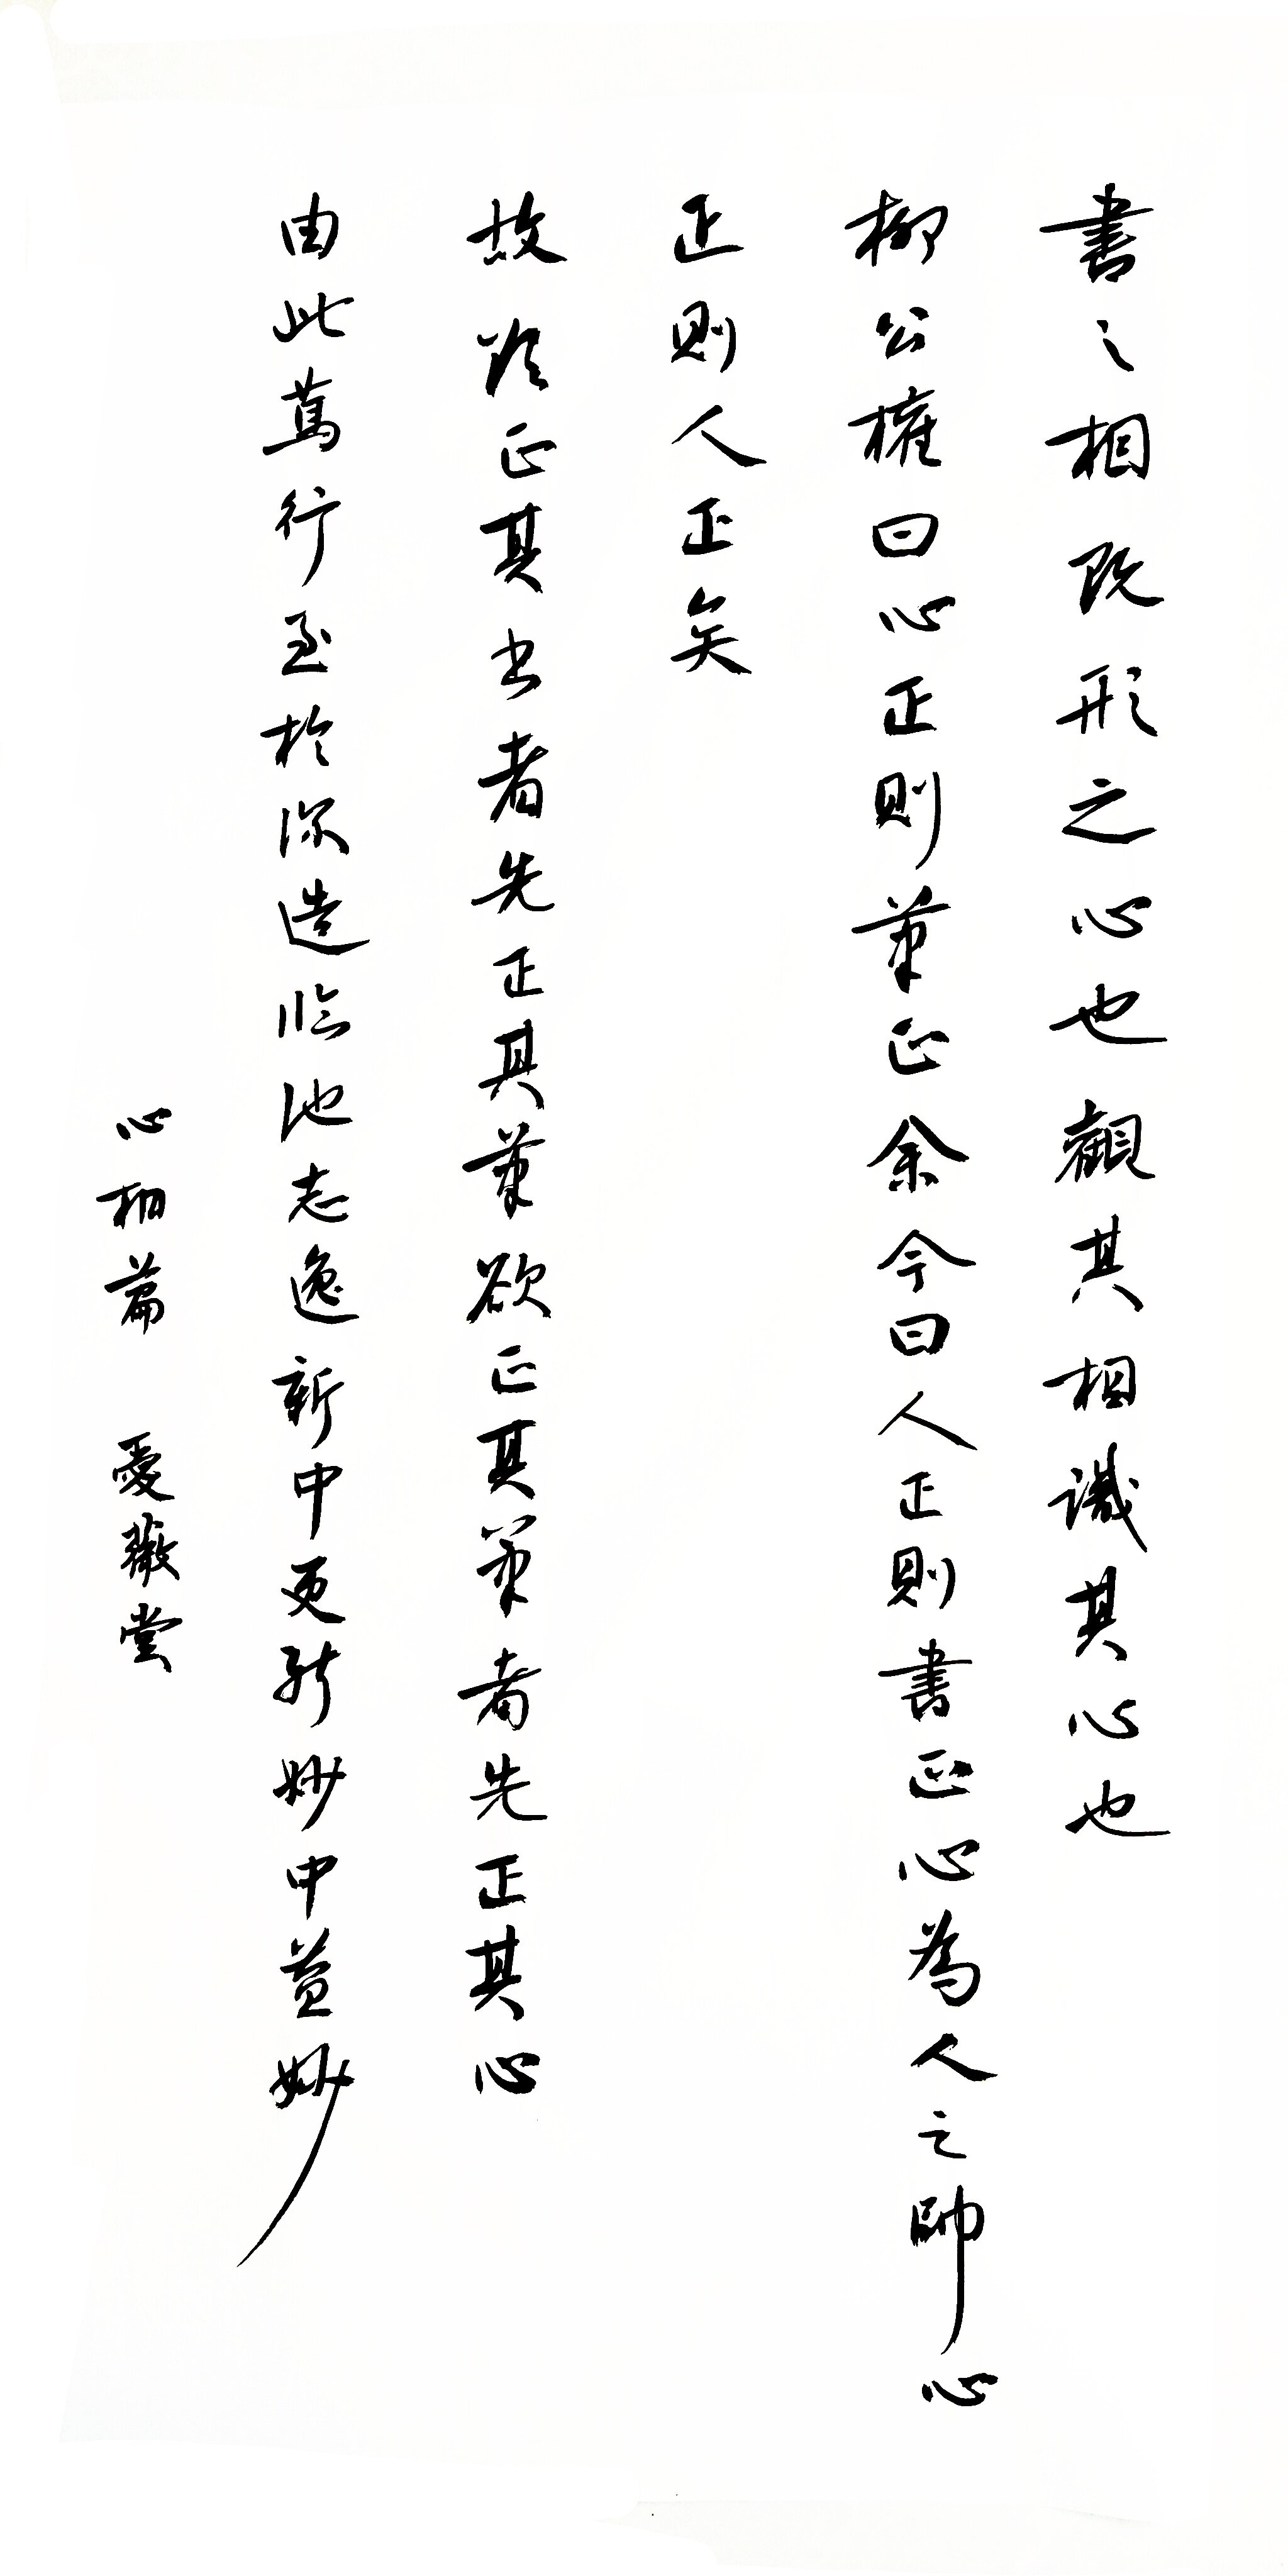 書之相既形之心也觀其相識其心也
柳公權曰心正則筆正余今曰人正則書正心為人之帥心
正則人正矣
故欲正其书者先正其筆欲正其筆者先正其心
由此篤行至於深造臨池志逸新中更新妙中益妙
心相篇 愛薇堂